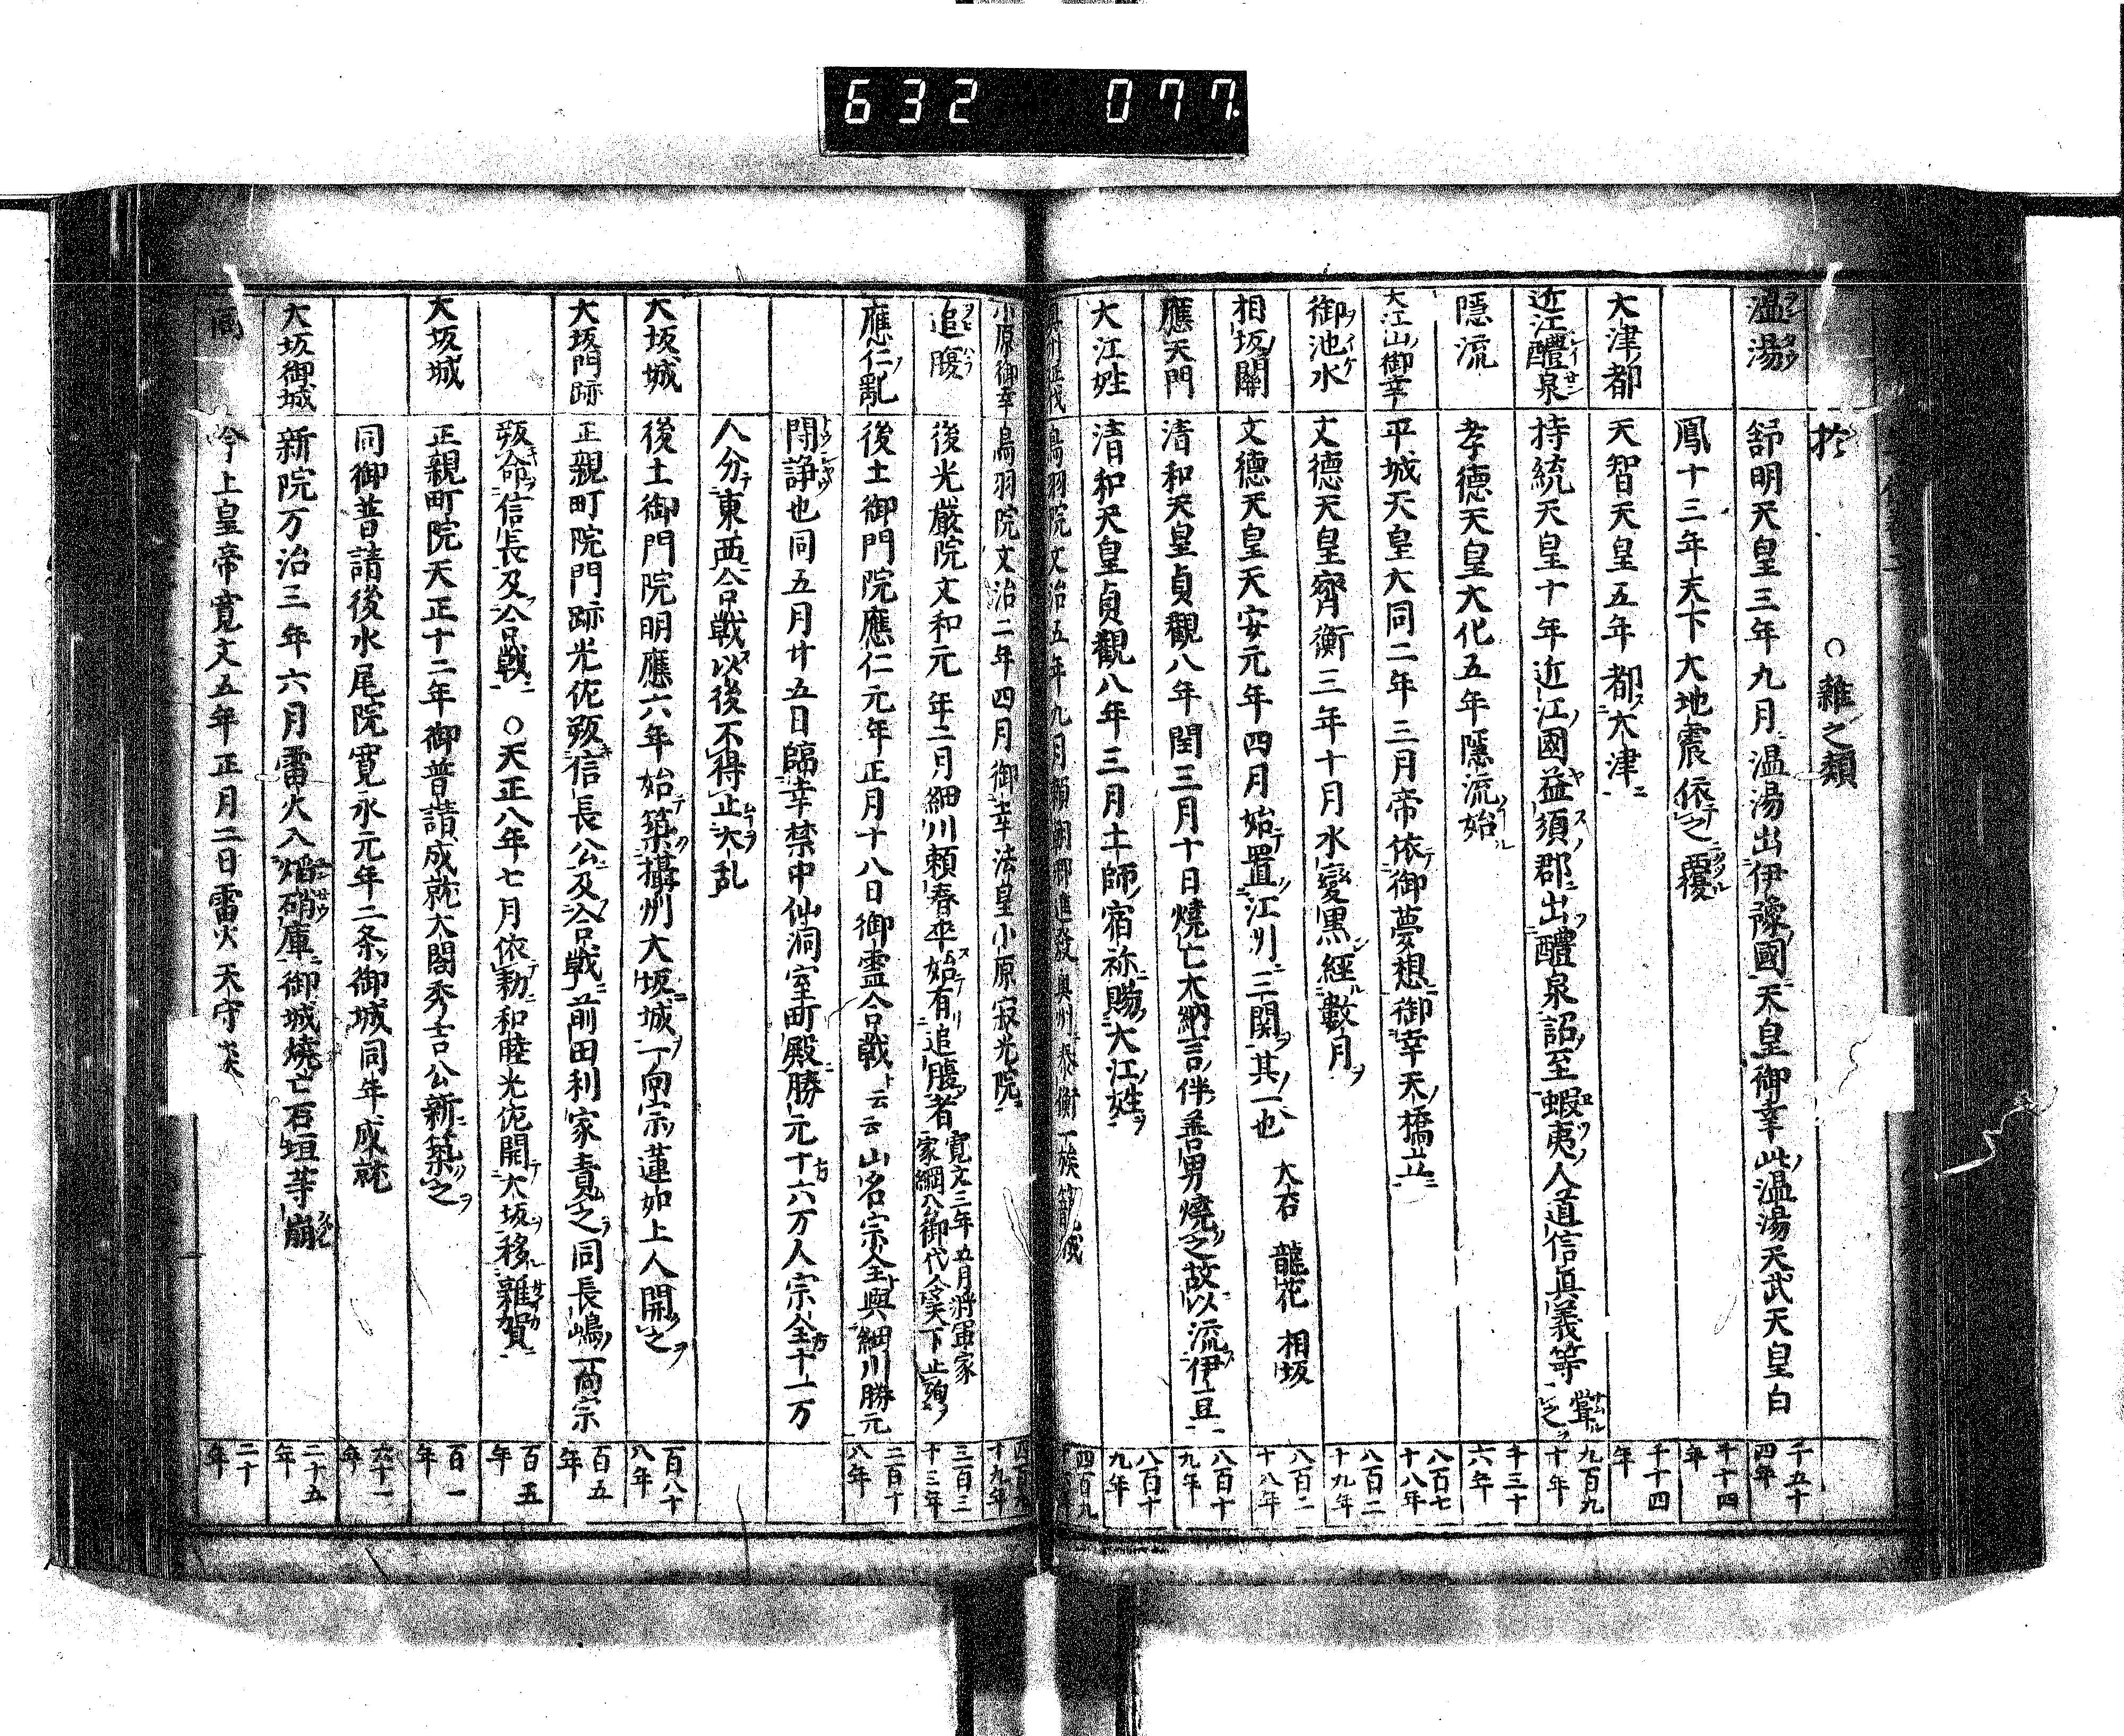 632 077.
於 ○雜之類
温湯 舒明天皇三年九月温湯出伊豫國天皇御幸此温湯天武天皇白 千五十四年
鳳十三年天下大地震依之覆 千十四年
大津都 天智天皇五年都大津 千十四年
近江醴泉 持統天皇十年近江國益須郡出醴泉詔至蝦夷人道信眞義等嘗之 九百九十年
隱流 孝德天皇大化五年隱流始 千三十六年
大江山御幸 平城天皇大同二年三月帝依御夢想御幸天橋立 八百七十八年
御池水 文德天皇齊衡三年十月水變黒經數月 八百二十九年
相坂關 文德天皇天安元年四月始置江州三関其一也 大石 龍花 相坂 八百二十八年
應天門 清和天皇貞觀八年閏三月十日燒亡大納言伴善男燒之故以流伊豆 八百十九年
大江姓 清和天皇貞觀八年三月土師宿祢賜大江姓 八百十九年
奥州征伐 鳥羽院文治五年九月頼朝卿進發奥州泰衡一族 四百九
小原御幸 鳥羽院文治二年四月御幸法皇小原寂光院 十九年
追腹 後光嚴院文和元年二月細川頼春卒始有追腹者 寛文三年五月將軍家家綱公御代令天下止殉 三百三十三年
應仁亂 後土御門院應仁元年正月十八日御霊合戦云云山名宗全與細川勝元 二百十八年
鬪諍也同五月廿五日臨幸禁中仙洞室町殿勝元十六万人宗全十一万
人分東西合戦以後不得止大乱
大坂城 後土御門院明應六年始築攝州大坂城一向宗蓮如上人開之 百八十八年
大坂門跡 正親町院門跡光佐叛信長公及合戦前田利家責之同長嶋一向宗 百五年
叛命信長及合戦 ○天正八年七月依勅和睦光佐開大坂移雜賀 百五年
大坂城 正親町院天正十二年御普請成就太閤秀吉公新築之 百一年
同御普請後水尾院寛永元年二条御城同年成就 六十一年
大坂御城 新院万治三年六月雷火入焔硝庫御城燒亡石垣等崩 二十五年
同 今上皇帝寛文五年正月二日雷火天守 二十年